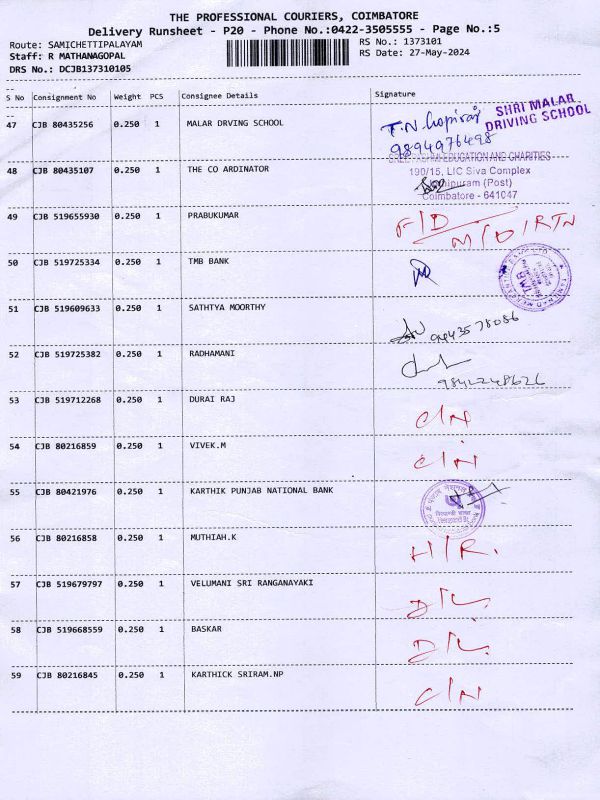 THE PROFESSIONAL COURIERS, COIMBATORE
Delivery Runsheet - P20 - Phone No.:0422-3505555 - Page No.:5
Route: SAMICHETTIPALAYAM
RS No.: 1373101
Staff: R MATHANAGOPAL
RS Date: 27-May-2024
DRS No.: DCJB137310105
S No Consignment No Weight PCS Consignee Details Signature
47 CJB 80435256 0.250 1 MALAR DRVING SCHOOL T.N. Gopiraj SHRI MALAR
DRIVING SCHOOL
9894976498
EDUCATION AND CHARITIES
48 CJB 80435107 0.250 1 THE CO ARDINATOR 190/15, LIC Siva Complex
(Post)
Coimbatore - 641047
49 CJB 519655930 0.250 1 PRABUKUMAR F/D
M/D/RTN
50 CJB 519725334 0.250 1 TMB BANK TMB
51 CJB 519609633 0.250 1 SATHTYA MOORTHY
52 CJB 519725382 0.250 1 RADHAMANI
53 CJB 519712268 0.250 1 DURAI RAJ C/N
54 CJB 80216859 0.250 1 VIVEK.M C/N
55 CJB 80421976 0.250 1 KARTHIK PUNJAB NATIONAL BANK
56 CJB 80216858 0.250 1 MUTHIAH.K H/R.
57 CJB 519679797 0.250 1 VELUMANI SRI RANGANAYAKI D/L.
58 CJB 519668559 0.250 1 BASKAR D/L.
59 CJB 80216845 0.250 1 KARTHICK SRIRAM.NP C/N